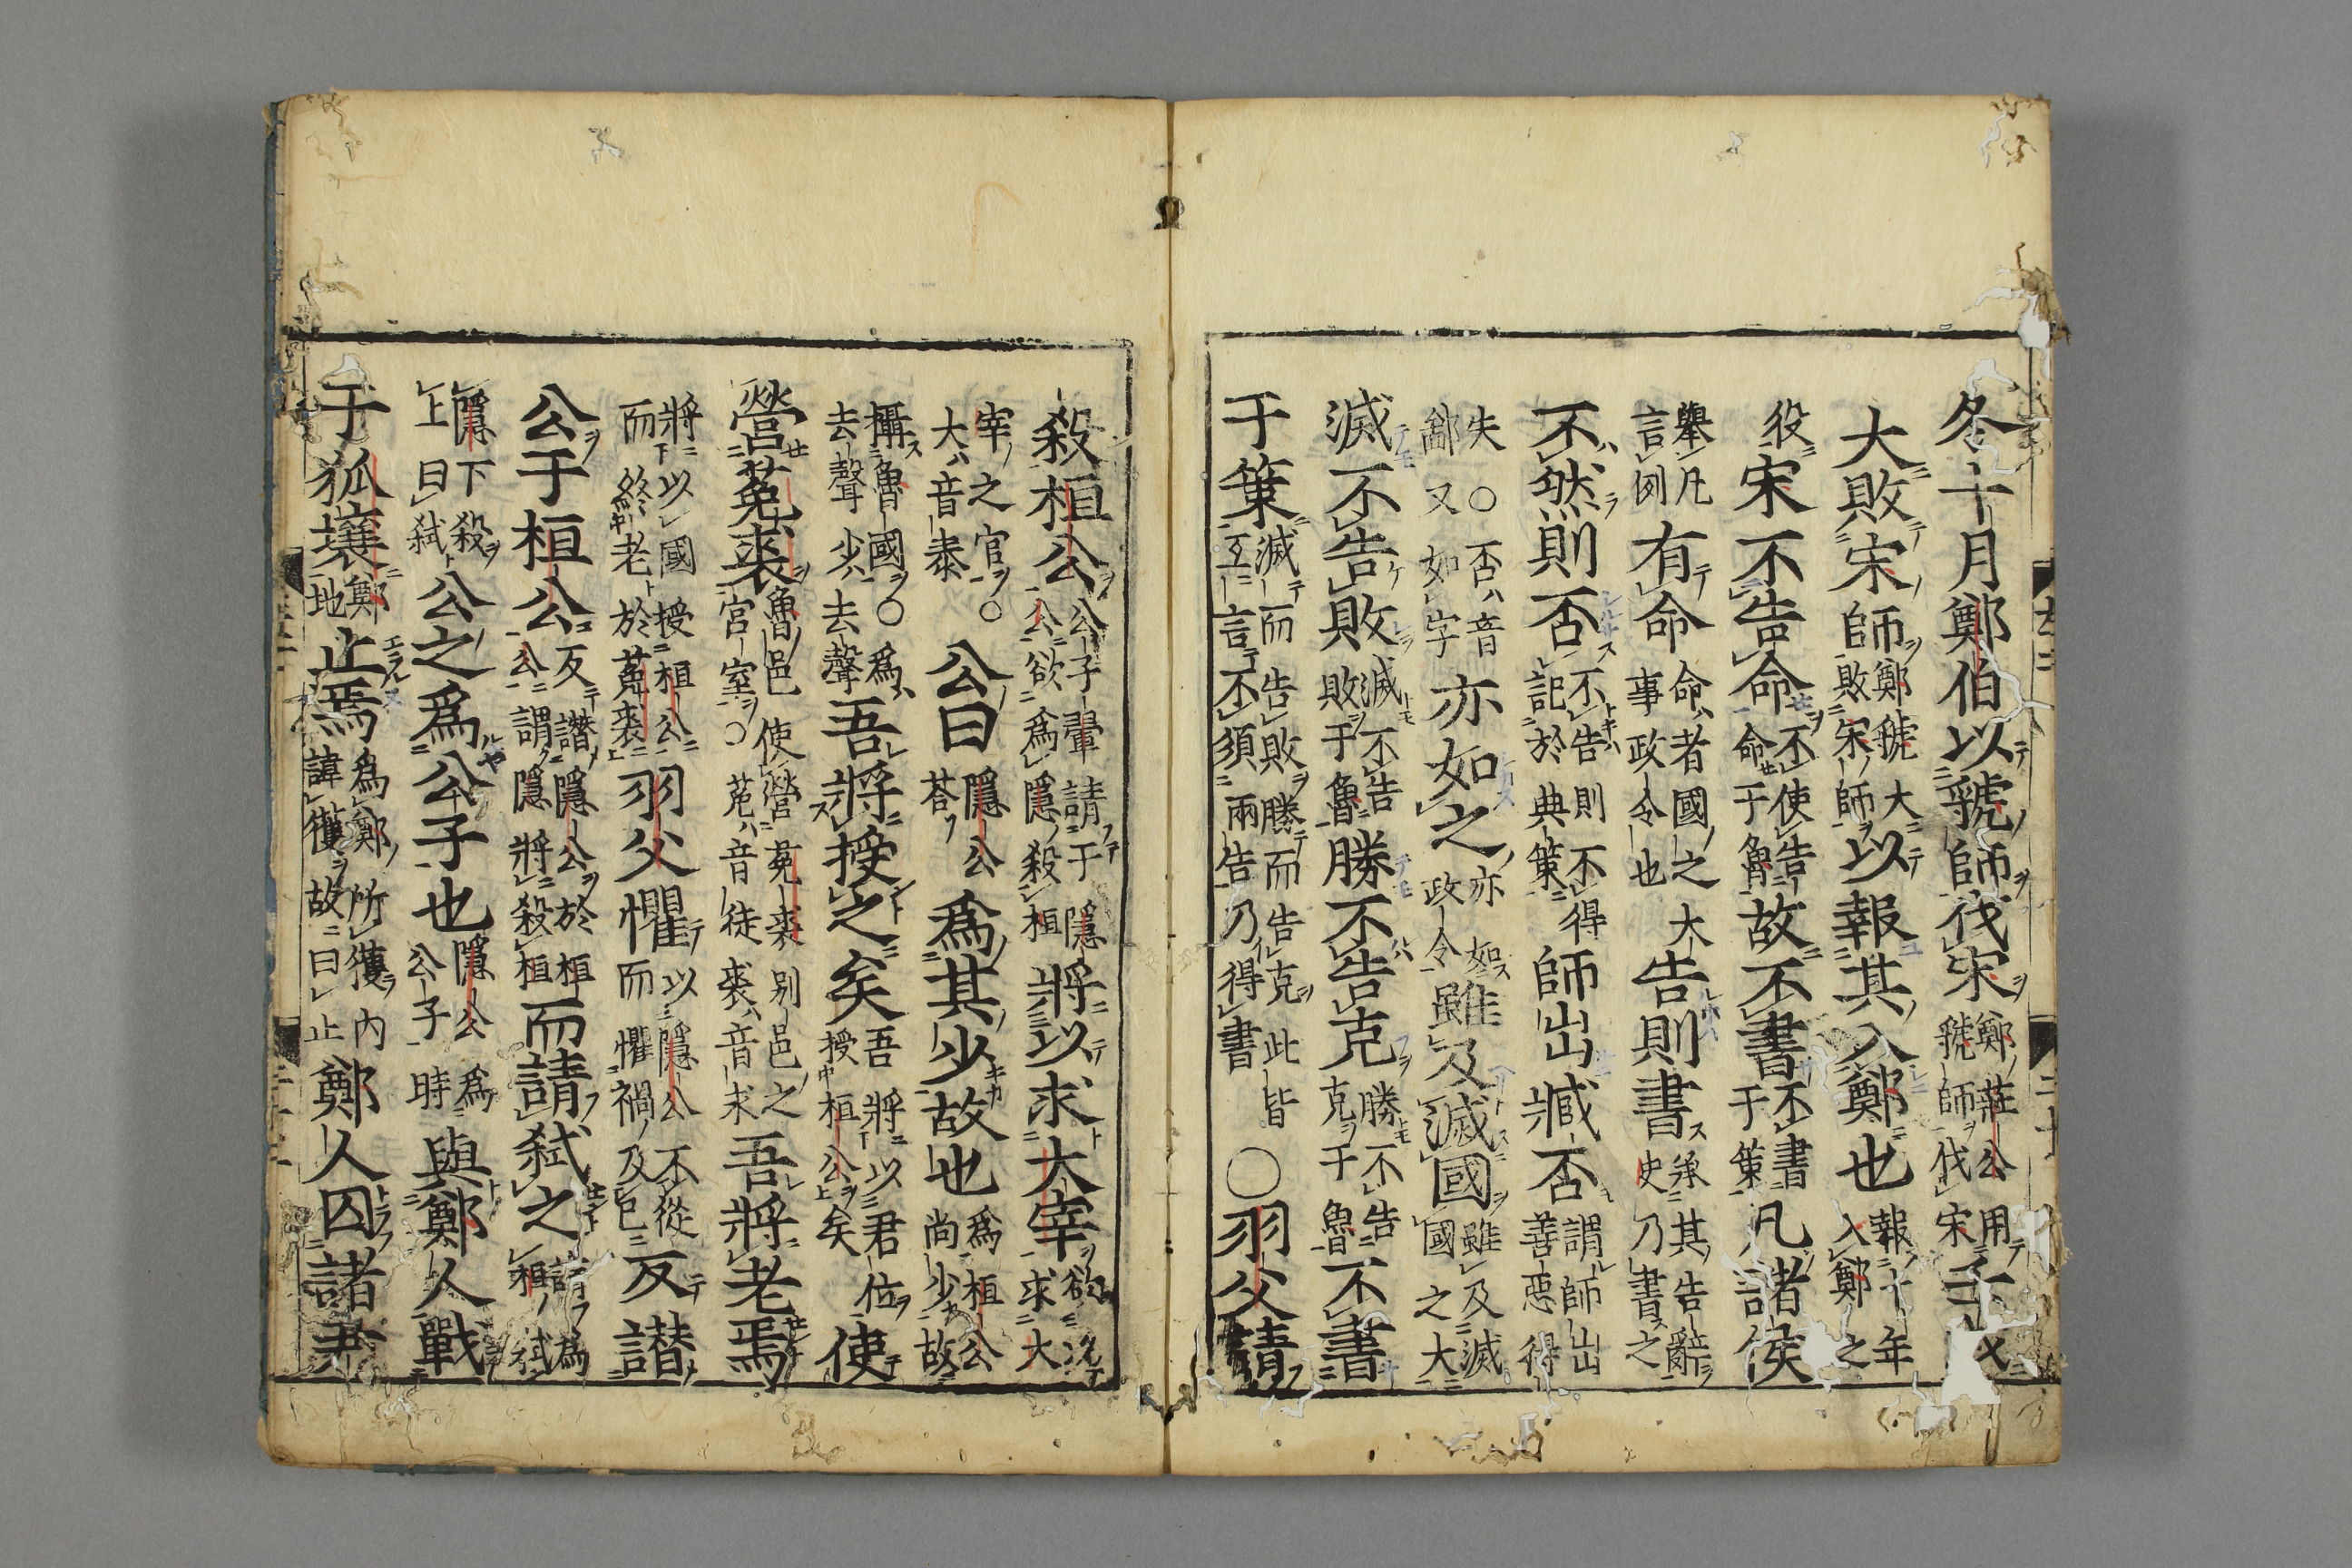 冬十月鄭伯以虢師伐宋鄭莊公用虢師伐宋壬戌
大敗宋師鄭虢大敗宋師以報其入鄭也報十年入鄭之
役宋不告命不使告命于魯故不書不書于策凡諸侯
舉凡言例有命命者國之大事政令也告則書承其告辭史乃書之
不然則否不告則不得記於典策師出臧否謂師出善惡得
失○否音鄙又如字亦如之亦如政令雖及滅國雖及滅國之大
滅不告敗滅不告敗于魯勝不告克勝不告克于魯不書
于策滅而告敗勝而告克此皆互言不須兩告乃得書○羽父請
殺桓公公子翬請于隱公欲爲隱殺桓將以求大宰欲求大
宰之官○大音泰公曰隱公荅爲其少故也爲桓公尚少故
攝魯國○爲去聲少去聲吾將授之矣吾將以君位授桓公矣使
營菟裘魯邑使營菟裘別邑之宮室○菟音徒裘音求吾將老焉
將以國授桓公而終老於菟裘羽父懼以隱公不從而懼禍及已反譖
公于桓公反譖隱公於桓公謂隱將殺桓而請弑之請爲桓弑
隱下殺上曰弑公之爲公子也隱公爲公子時與鄭人戰
于狐壤鄭地止焉爲鄭所獲內諱獲故曰止鄭人囚諸尹